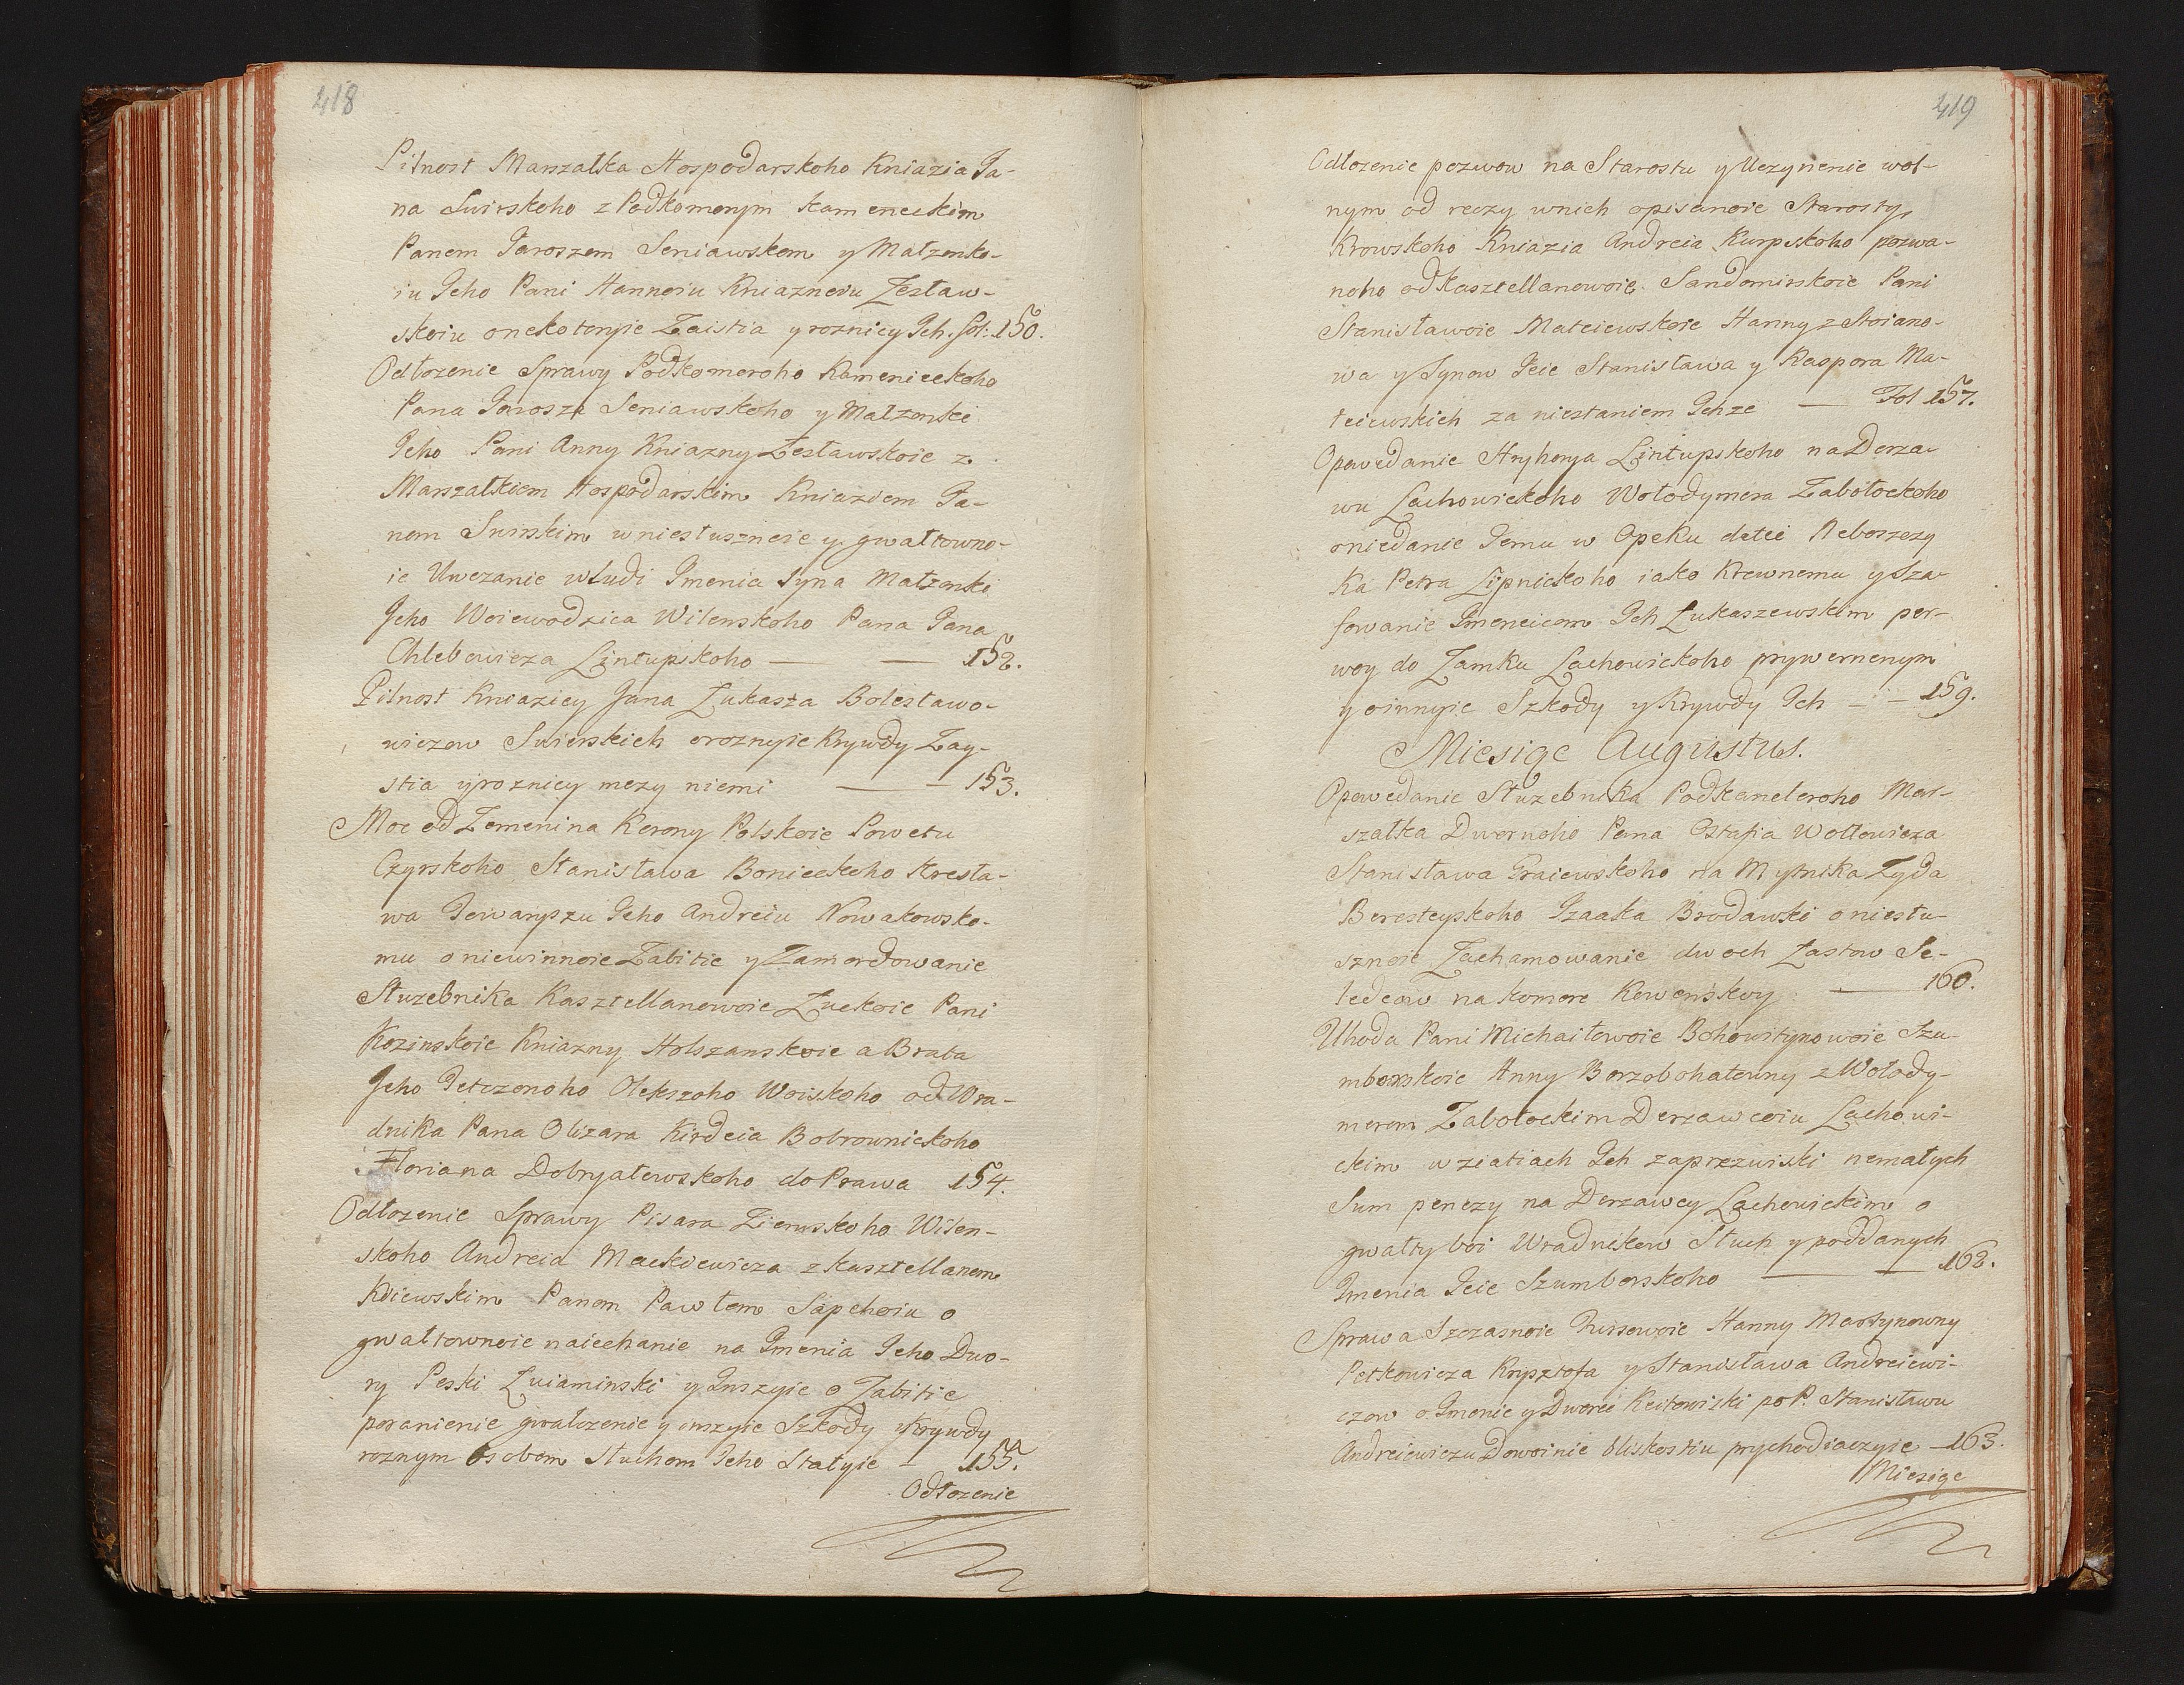 418
Pilnost Marszałka Hospodarskoho Kniazia Ja-
na Swirskoho z Podkomorym Kameneckim
Panem Jaroszem Seniawskom y Małzonko-
iu Jeho Pani Hannoiu Kniaznoiu Zesław-
skoiu onekotoryie Zaistia y roznicy Jch. fol: 150.
Odłozenie Sprawy Podkomoroho Kamenieckoho
Pana Jarosza Seniawskoho y Małzonki
Jeho Pani Anny Kniazny Zesławskoie z
Marszałkiem Hospodarskim Kniaziem Ja-
nom Swirskim wniesłusznoie y gwałtowno-
ie Uwezanie wludi Jmenia Syna Małzonki
Jeho Woiewodzica Wilenskoho Pana Jana
Chlebowicza Lintupskoho — — 152.
Pilnost Kniazicy Jana Łukasza Bolesława-
wiczow Swierskich oroznyie Krywdy Zay-
stia yroznicy mezy niemi — — 153.
Moc od Zemenina Korony Polskoie Powetu
Czyrskoho Stanisława Bonieckoho Kresła-
wa Towaryszu Jeho Andreiu Nowakowsko-
mu oniewinnoie Zabitie y Zamordowanie
Słuzebnika Kasztellanowoie Łuckoie Pani
Kozinskoie Kniazny Holszanskoie a Brata
Jeho Jetczonoho Olekszoho Woiskoho od Wra-
dnika Pana Olizara Kirdeia Bobrownickoho
Floriana Dobryałowskoho do Prawa 154.
Odłozenie Sprawy Pisara Ziemskoho Wilen-
skoho Andreia Mackiewicza z Kasztellanem
Kiiewskim Panom Pawłom Sapehoiu o
gwałtownoie naiechanie na Jmenia Jeho Dwo-
ry Peski Zwiaminski y Jnszyie o Zabitie
poranienie gwałczenie y onszyie Szkody y Krywdy
roznym Osobom Słuhom Jeho Stałyie — 155.
Odłozenie
419
Odłozenie pozwow na Starostu y Uczynenie wol-
nym od reczy wnich opisanoie Starosty
Krowskoho Kniazia Andreia Kurpskoho pozwa-
noho od Kasztellanowoie Sandomirskoie Pani
Stanisławoie Mateiewskoie Hanny z Stoiano-
wa y Synow Jeie Stanisława y Kaspora Ma-
teiewskich za niestaniem Jchze — Fol 157.
Opowedanie Hryhorya Lintupskoho na Derza-
wu Lachowickoho Wołodymera Zabołockoho
oniedanie Jemu w Opeku detei Neboszczy
ka Petra Lipnickoho iako Krewnemu y Sza-
fowanie Jmeneicom Jch Łukaszewskim per-
woy do Zamku Lachowickoho prywernenym
y oinnyie Szkody y Krywdy Jch — — 159.
Miesiąc Augustus.
Opowedanie Słuzebnika Podkancleroho Mar-
szałka Dwornoho Pana Ostafia Wołłowicza
Stanisława Graiewskoho na Mytnika Zyda
Beresteyskoho Jzaaka Brodawki oniesłu-
sznoie Zachamowanie dwoch Łastow Se-
ledcow na komore Kowenskoy — 160.
Uhoda Pani Michaiłowoie Bohowitynowoie Szu-
mborskoie Anny Borzobohatowny z Wołody-
merom Zabołockim Derzawcoiu Lachowi-
ckim w ziatiach Jch zaprezwiski nemałych
Sum penezy na Derzawcy Lachowickim o
gwałty boi Wradnikow Słuch y poddanych
Jmenia Jeie Szumborskoho — — 162.
Sprawa Szczasnoie Jurewoie Hanny Martynowny
Petkowicza Krysztofa y Stanisława Andreiewi-
czow o Jmenie y Dworec Keitowiski po P. Stanisławu
Andreiewiczu Dowoinie bliskostiu prychodiaczyie — 163.
Miesiąc